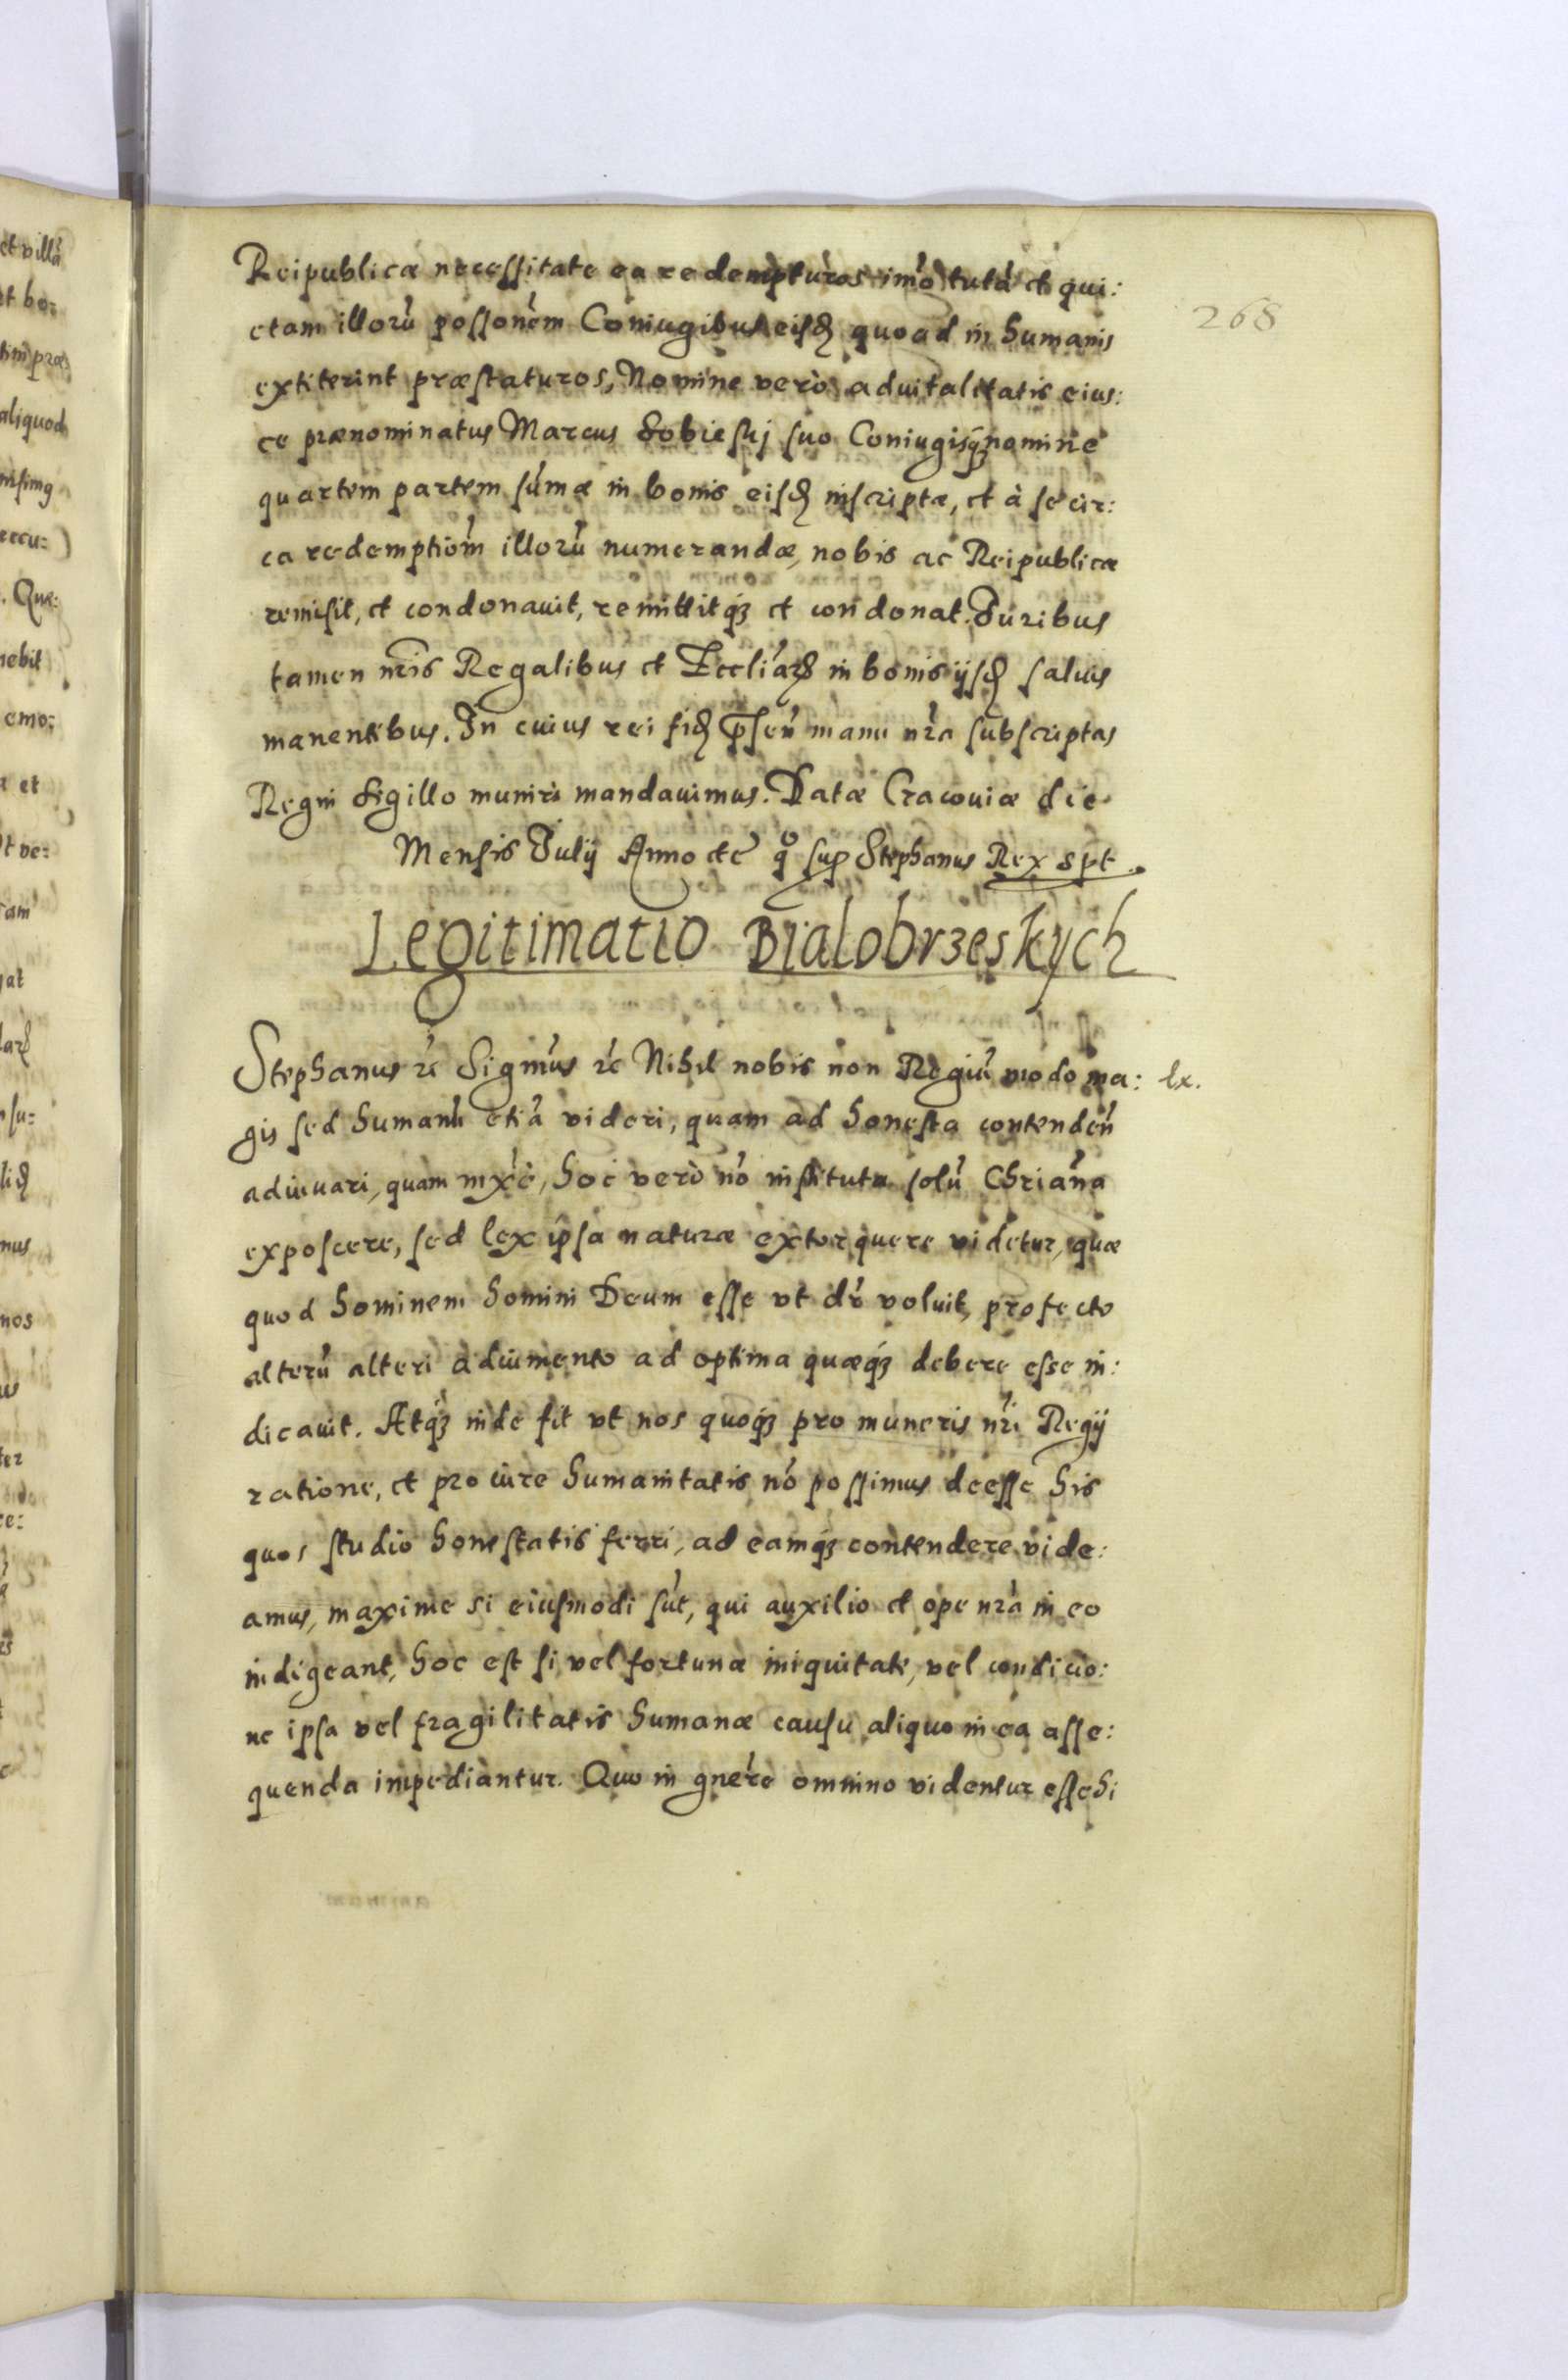 268
Reipublicæ necessitate ea redempturos imò tutã et qui:
etam illorũ possonẽm Coniugibus eisd. quoad in humanis
extiterint præstaturos, Nomine verò aduitalitatis eius:
ce prænominatus Marcus Sobieskj suo Coniugisq3 nomine
quartem partem sũmæ in bonis eisd. inscriptæ, et à se cir:
ca redemptiõm illorũ numerandæ, nobis ac Reipublicæ
remisit, et condonauit, remittitq3 et condonat. Juribus
tamen nr̃is Regalibus et Eccliãrꝝ in bonis ijsd. saluis
manentibus. In cuius rei fid. p̃señ manu nr̃a subscriptas
Regni sigillo muniri mandauimus. Datæ Cracouiæ die
Mensis Julij Anno etc qº sup Stephanus Rex spt.
Legitimatio Bialobrzeskych
Stephanus rc̃ Signũs rc̃ Nihil nobis non Regiũ modo ma: lx.
gis sed humanũ etiã videri, quam ad honesta contendeñ
adiuuari, quam mxẽ, hoc verò nõ instituta solũ Chriãna
exposcere, sed lex ipsa naturæ extorquere videtur, quæ
quod hominem homini Deum esse vt dr̃ voluit, profecto
alterũ alteri adiumento ad optima quæq3 debere esse in:
dicauit. Atq3 inde fit vt nos quoq3 pro muneris nr̃i Regij
ratione, et pro iure humanitatis nõ possimus deesse his
quos studio honestatis ferri, ad eamq3 contendere vide:
amus, maxime si eiusmodi sũt, qui auxilio et ope nr̃a in eo
indigeant, hoc est si vel fortunæ iniquitate, vel condicio:
ne ipsa vel fragilitatis humanæ causu aliquo in ea asse:
quenda impediantur. Quo in gner̃e omnino videntur esse hi